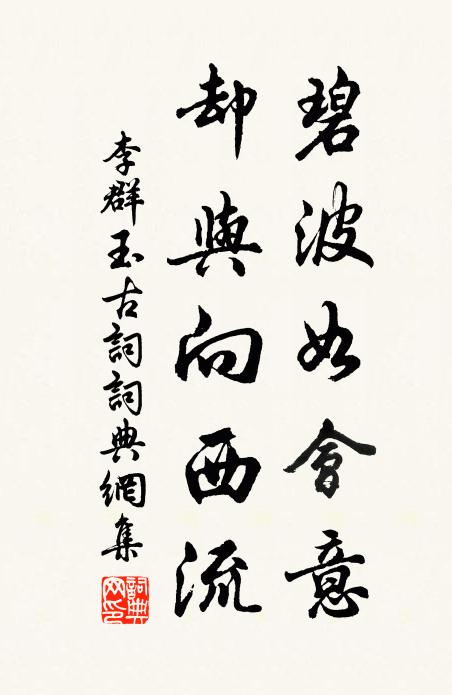 碧波如會意
却與向西流
李群玉古詞詞典網集
詞典網印